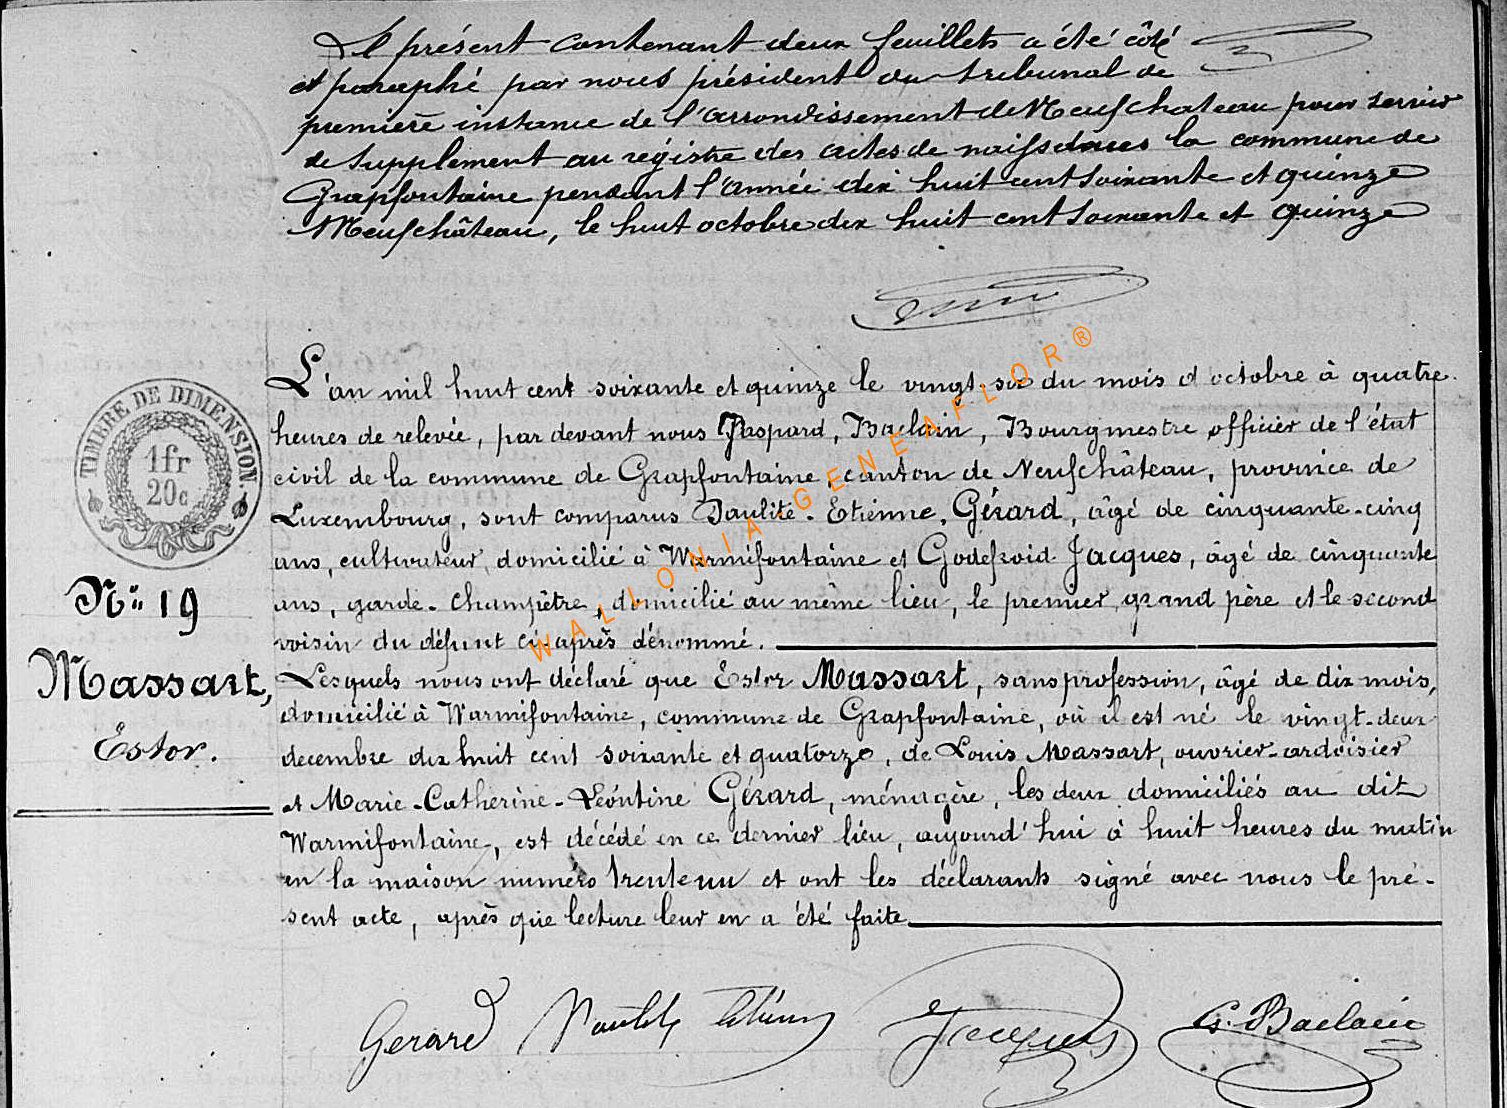 Le présent contenant deux feuillets a été côté
et paraphé par nous président du tribunal de
première instance de l'arrondissement de Neufchateau pour servir
de supplement au régistre des actes de naissances la commune de
Grapfontaine pendant l'année dix huit cent soixante et quinze
Neufchâteau, le huit octobre dix huit cent soixante et quinze
L'an mil huit cent soixante et quinze le vingt-six du mois d'octobre à quatre
heures de relevée, par devant nous Gaspard, Baclain, Bourgmestre officier de l'état
civil de la commune de Grapfontaine, canton de Neufchâteau, province de
Luxembourg, sont comparus Paulite-Etienne, Gérard, âgé de cinquante-cinq
ans, cultivateur, domicilié à Warmifontaine et Godefroid Jacques, âgé de cinquante
ans, garde-champêtre, domicilié au même lieu, le premier grand père et le second
voisin du défunt ci-après dénommé.
Lesquels nous ont déclaré que Ester Massart, sans profession, âgé de dix mois,
domicilié à Warmifontaine, commune de Grapfontaine, où il est né le vingt-deux
decembre dix huit cent soixante et quatorze, de Louis Massart, ouvrier-ardoisier
et Marie-Catherine-Léontine Gérard, ménagère, les deux domiciliés au dit
Warmifontaine, est décédé en ce dernier lieu, aujourd'hui à huit heures du matin
en la maison numéro trente un et ont les déclarants signé avec nous le pré-
sent acte, après que lecture leur en a été faite.
TIMBRE DE DIMENSION
1 fr
20c
N° 19
Massart,
Ester.
WALLONIA-GENEAFLOR®
Gerard Paulite Etienne Jacques G. Baclain